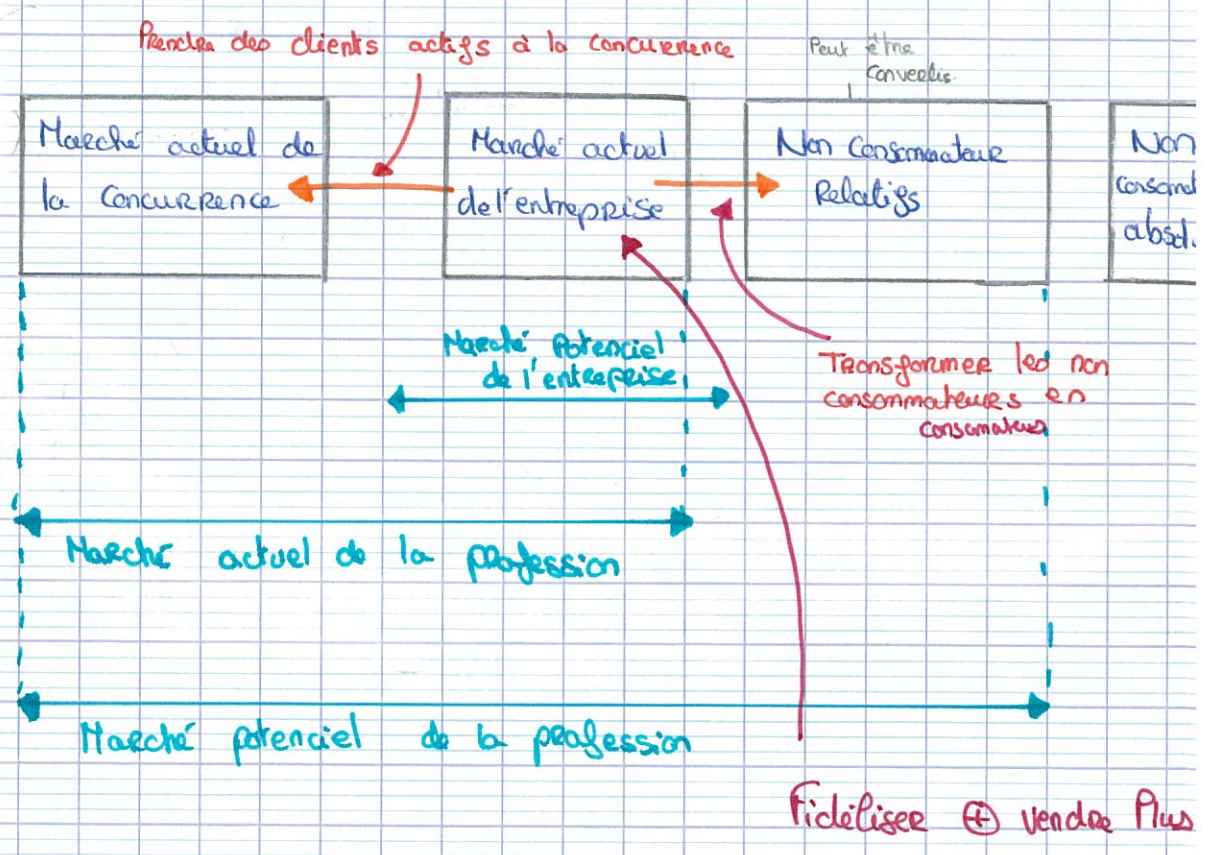 Prendre des clients actifs à la concurrence
Peut être
convertis.
Marché actuel de
la concurrence
Marché actuel
de l'entreprise
Non Consommateur
Relatifs
Non
consomat
absol.
Marché Potenciel
de l'entreprise
Transformer les non
consommateurs en
consomateurs
Marché actuel de la profession
Marché potenciel de la profession
Fidéliser ⊕ vendre Plus